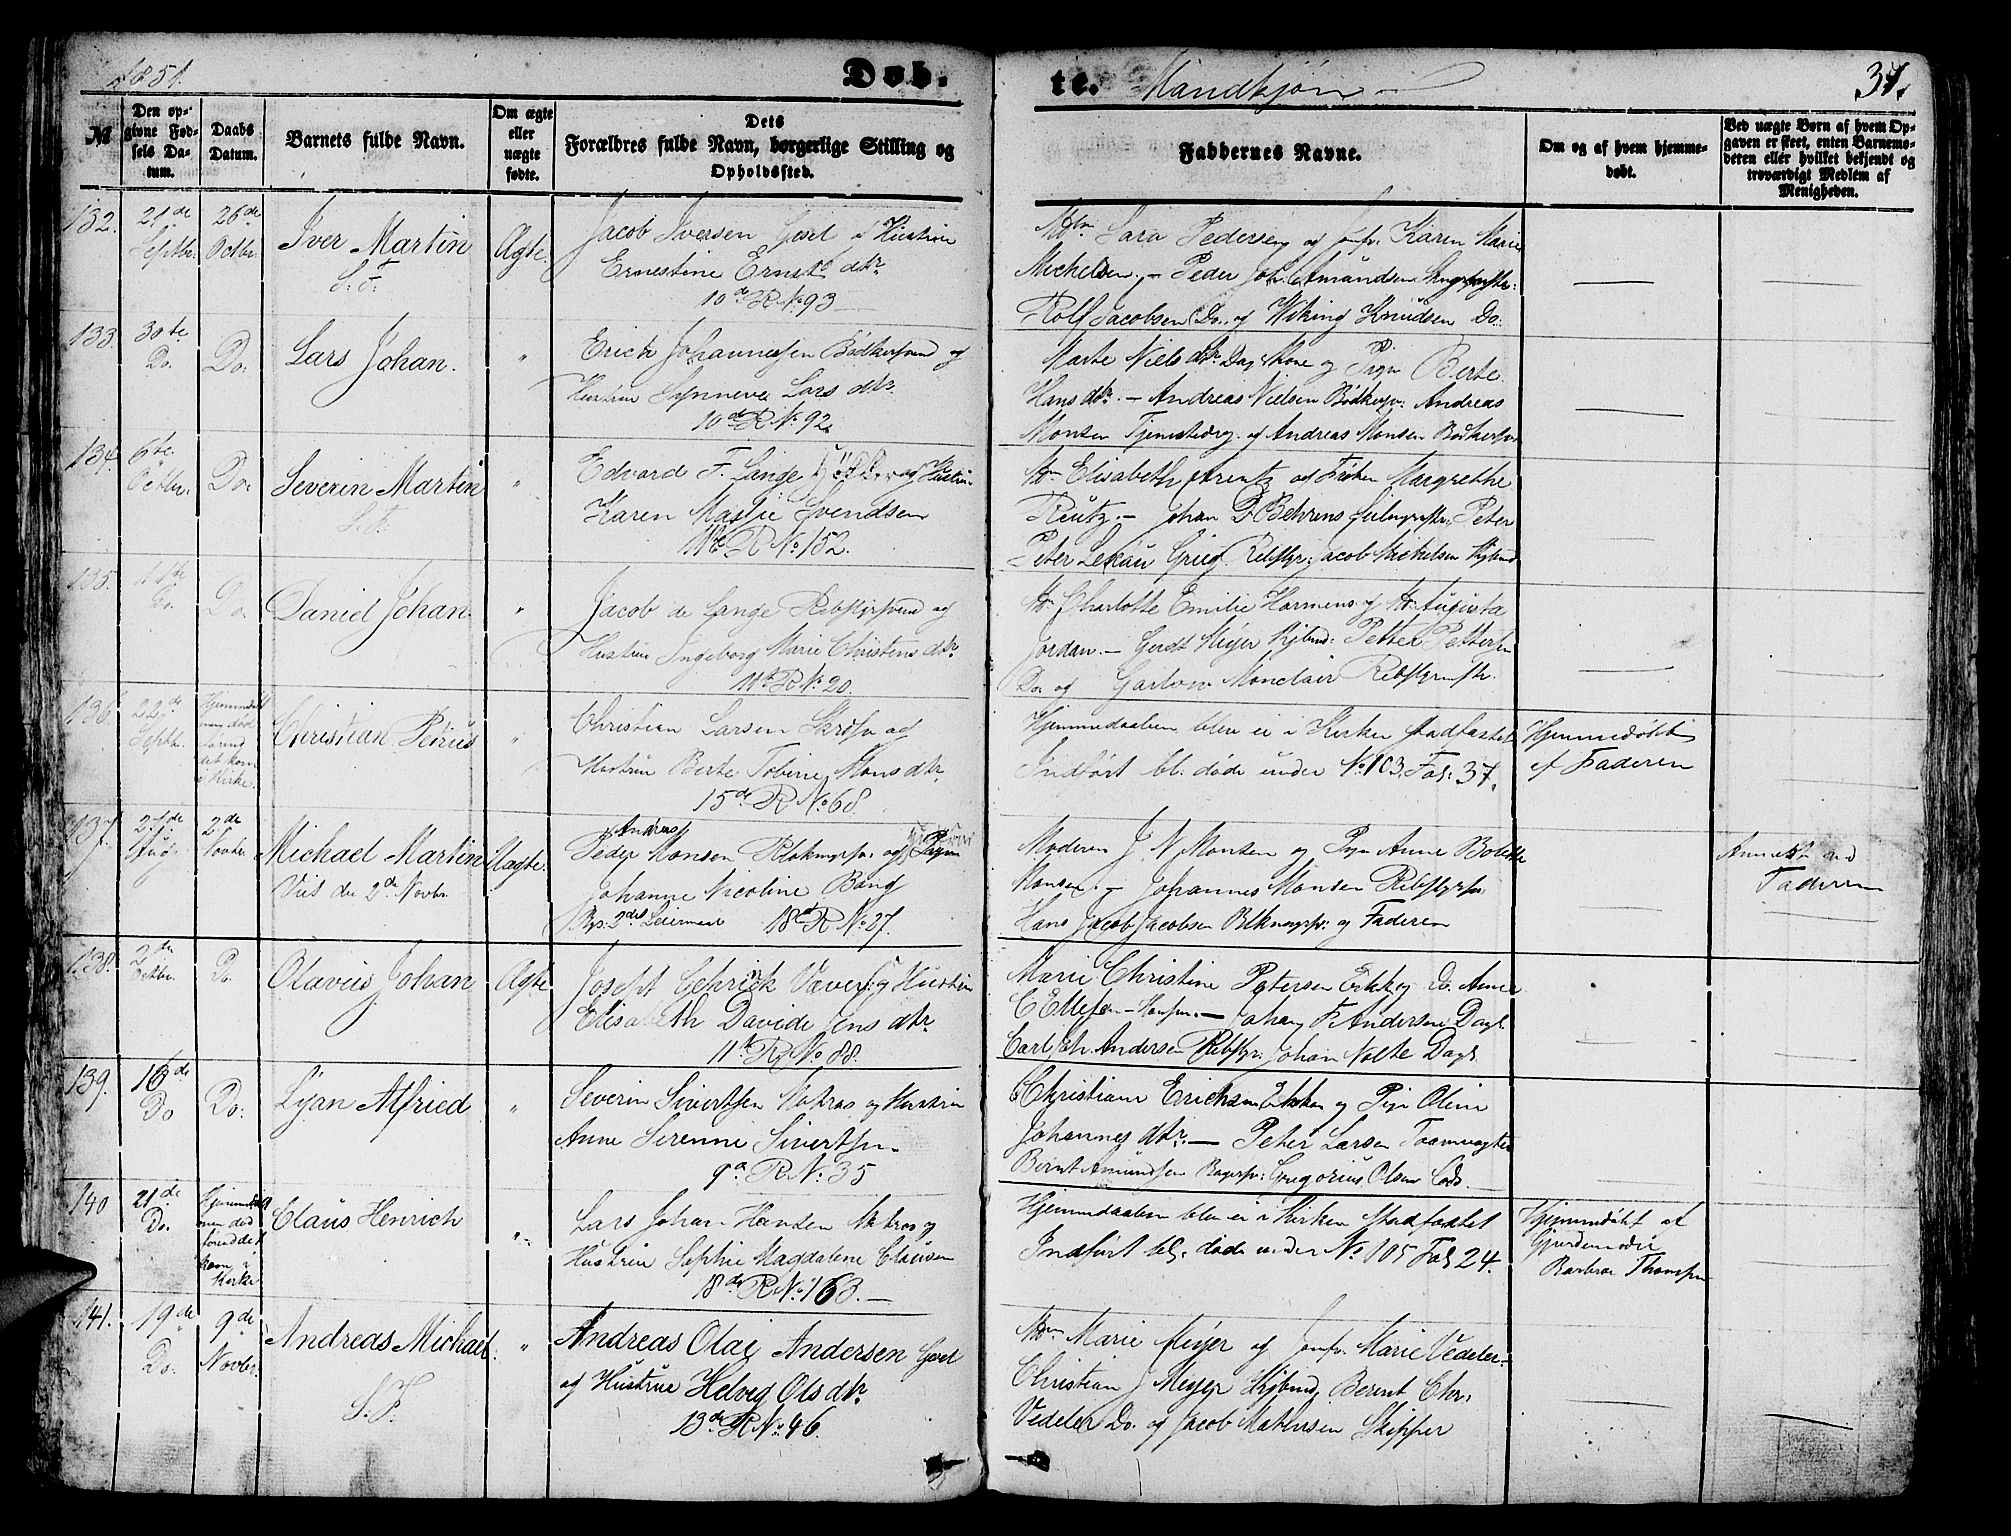 1851.
Døb-
te. Mandkjøn
37.
№
Den op-
givne Fød-
sels Da-
tum.
Daabs
Datum.
Barnets fulde Navn.
Om ægte
eller
uægte
fødte.
Dets
Forældres fulde Navn, borgerlige Stilling og
Opholdssted.
Faddernes Navne.
Om og af hvem hjemme-
døbt.
Ved uægte Børn af hvem Op-
gaven er skeet, enten Barnemo-
deren eller hvilket bekjendt og
troværdigt Medlem af
Menigheden.
132.
21de
Septbr.
26de
Octbr.
Iver Martin
S. F.
Ægte.
Jacob Iversen Gesel & Hustrue
Ernestine Ernst dtr
10de R No 93
Sara Pedersen og Jomfr. Karen Marie
Michelsen, - Peder Joh. Amundsen
Rolf Jacobsen Do. og Wiking Knudsen Do.
133.
30te
Do.
Do.
Lars Johan.
"
Erich Johannessen Bødkersvend og
Hustrue Synneva Lars dtr.
10de R No 92
Marte Niels dtr. Dag. Kone og Pige Berte
Hans dtr. - Andreas Nielsen Bødkersv. Andreas
Monsen Tjenestedrg. og Andreas Monsen Bødkersv.
134.
6te
Octbr.
Do.
Severin Martin
S. F.
"
Edvard F. Lange og Hustrue
Karen Marie Svendsen
11te R No. 152.
Elisabeth Arentz og Frøken Margrethe
Reutz. - Johan D Behrens Peter
Peter Lexau Grieg Rebslgr: Jacob Mickelsen
135.
11te
Do.
Do.
Daniel Johan.
"
Jacob de Lange Rebslgrsvend og
Hustrue Ingeborg Marie Christens dtr.
11te R No. 20.
Charlotte Emilie Harmens og Augusta
Jordan. - Gerdt Meyer Kjbmd: Petter Pettersen
Do og Garlow Monclair Rebslgrmstr.
136.
22de
Septbr.
Hjemmedøbt
men død
førend
det kom
i Kirke.
Christian Petrius
"
Christian Larsen og
Hustrue Berte Tobine Mons dtr.
15de R No 68.
Hjemmedaaben blev ei i Kirken stadfæstet
Indført bl. døde under No 103 Fol: 37.
Hjemmedøbt
af Faderen
137.
21de
Aug.
2de
Novbr.
Michael Martin
Viet de 2de Novbr.
Uægte.
Andreas
Peder Monsen Blokmgrsv. og Pigen
Johanne Nicoline Bang
2des Leiermaal 18de R No 27.
Moderen J. N. Monsen og Pige Anne Bolette
Monsen. - Johannes Monsen Rebslgrsv.
Hans Jacob Jacobsen Blkmgrsv: og Faderen
Anmeldt ved
Faderen
138.
2de
Octbr.
Do.
Olavus Johan
Ægte
Joseph Gehrick Væver og Hustrue
Elisabeth Davide Jens dtr.
11te R No 88.
Marie Christine Petersen Enke og Do. Anne
C Ellefsen - Johan F. Andersen Dagl.
Carl Joh. Andersen Rebslgr: Johan Nolte Dagl.
139.
16de
Do
Do:
Lyan Alfried
"
Severin Sivertsen Matros og Hustrue
Anne Serenne Sivertsen
9de R No. 35
Christiane Erichsen Enke og Pige Oline
Johannes dtr. - Peter Larsen Taarnvagter
Bernt Amundsen Bagersv: Gregorius Olsen Do.
140
21de
Do.
Hjemmedøbt
men død
førend det
kom i
Kirke
Claus Henrich
"
Lars Johan Hansen Matros og
Hustrue Sophie Magdalene Clausen
18de R No 163.
Hjemmedaaben blev ei i Kirken stadfæstet
Indført bl. døde under No 105 Fol 24.
Hjemmedøbt af
Gjordemoder
Barbra Thomsen
141.
19de
Do.
9de
Novbr.
Andreas Michael.
S. F.
"
Andreas Olai Andersen Gesel
og Hustrue Helvig Ols dtr.
13de R No. 46.
Marie Meyer og Jomfr. Marie Vedeler.
Christian J. Meyer Kjbmd, Berent Chr.
Vedeler Do. og Jacob Mathissen Skipper